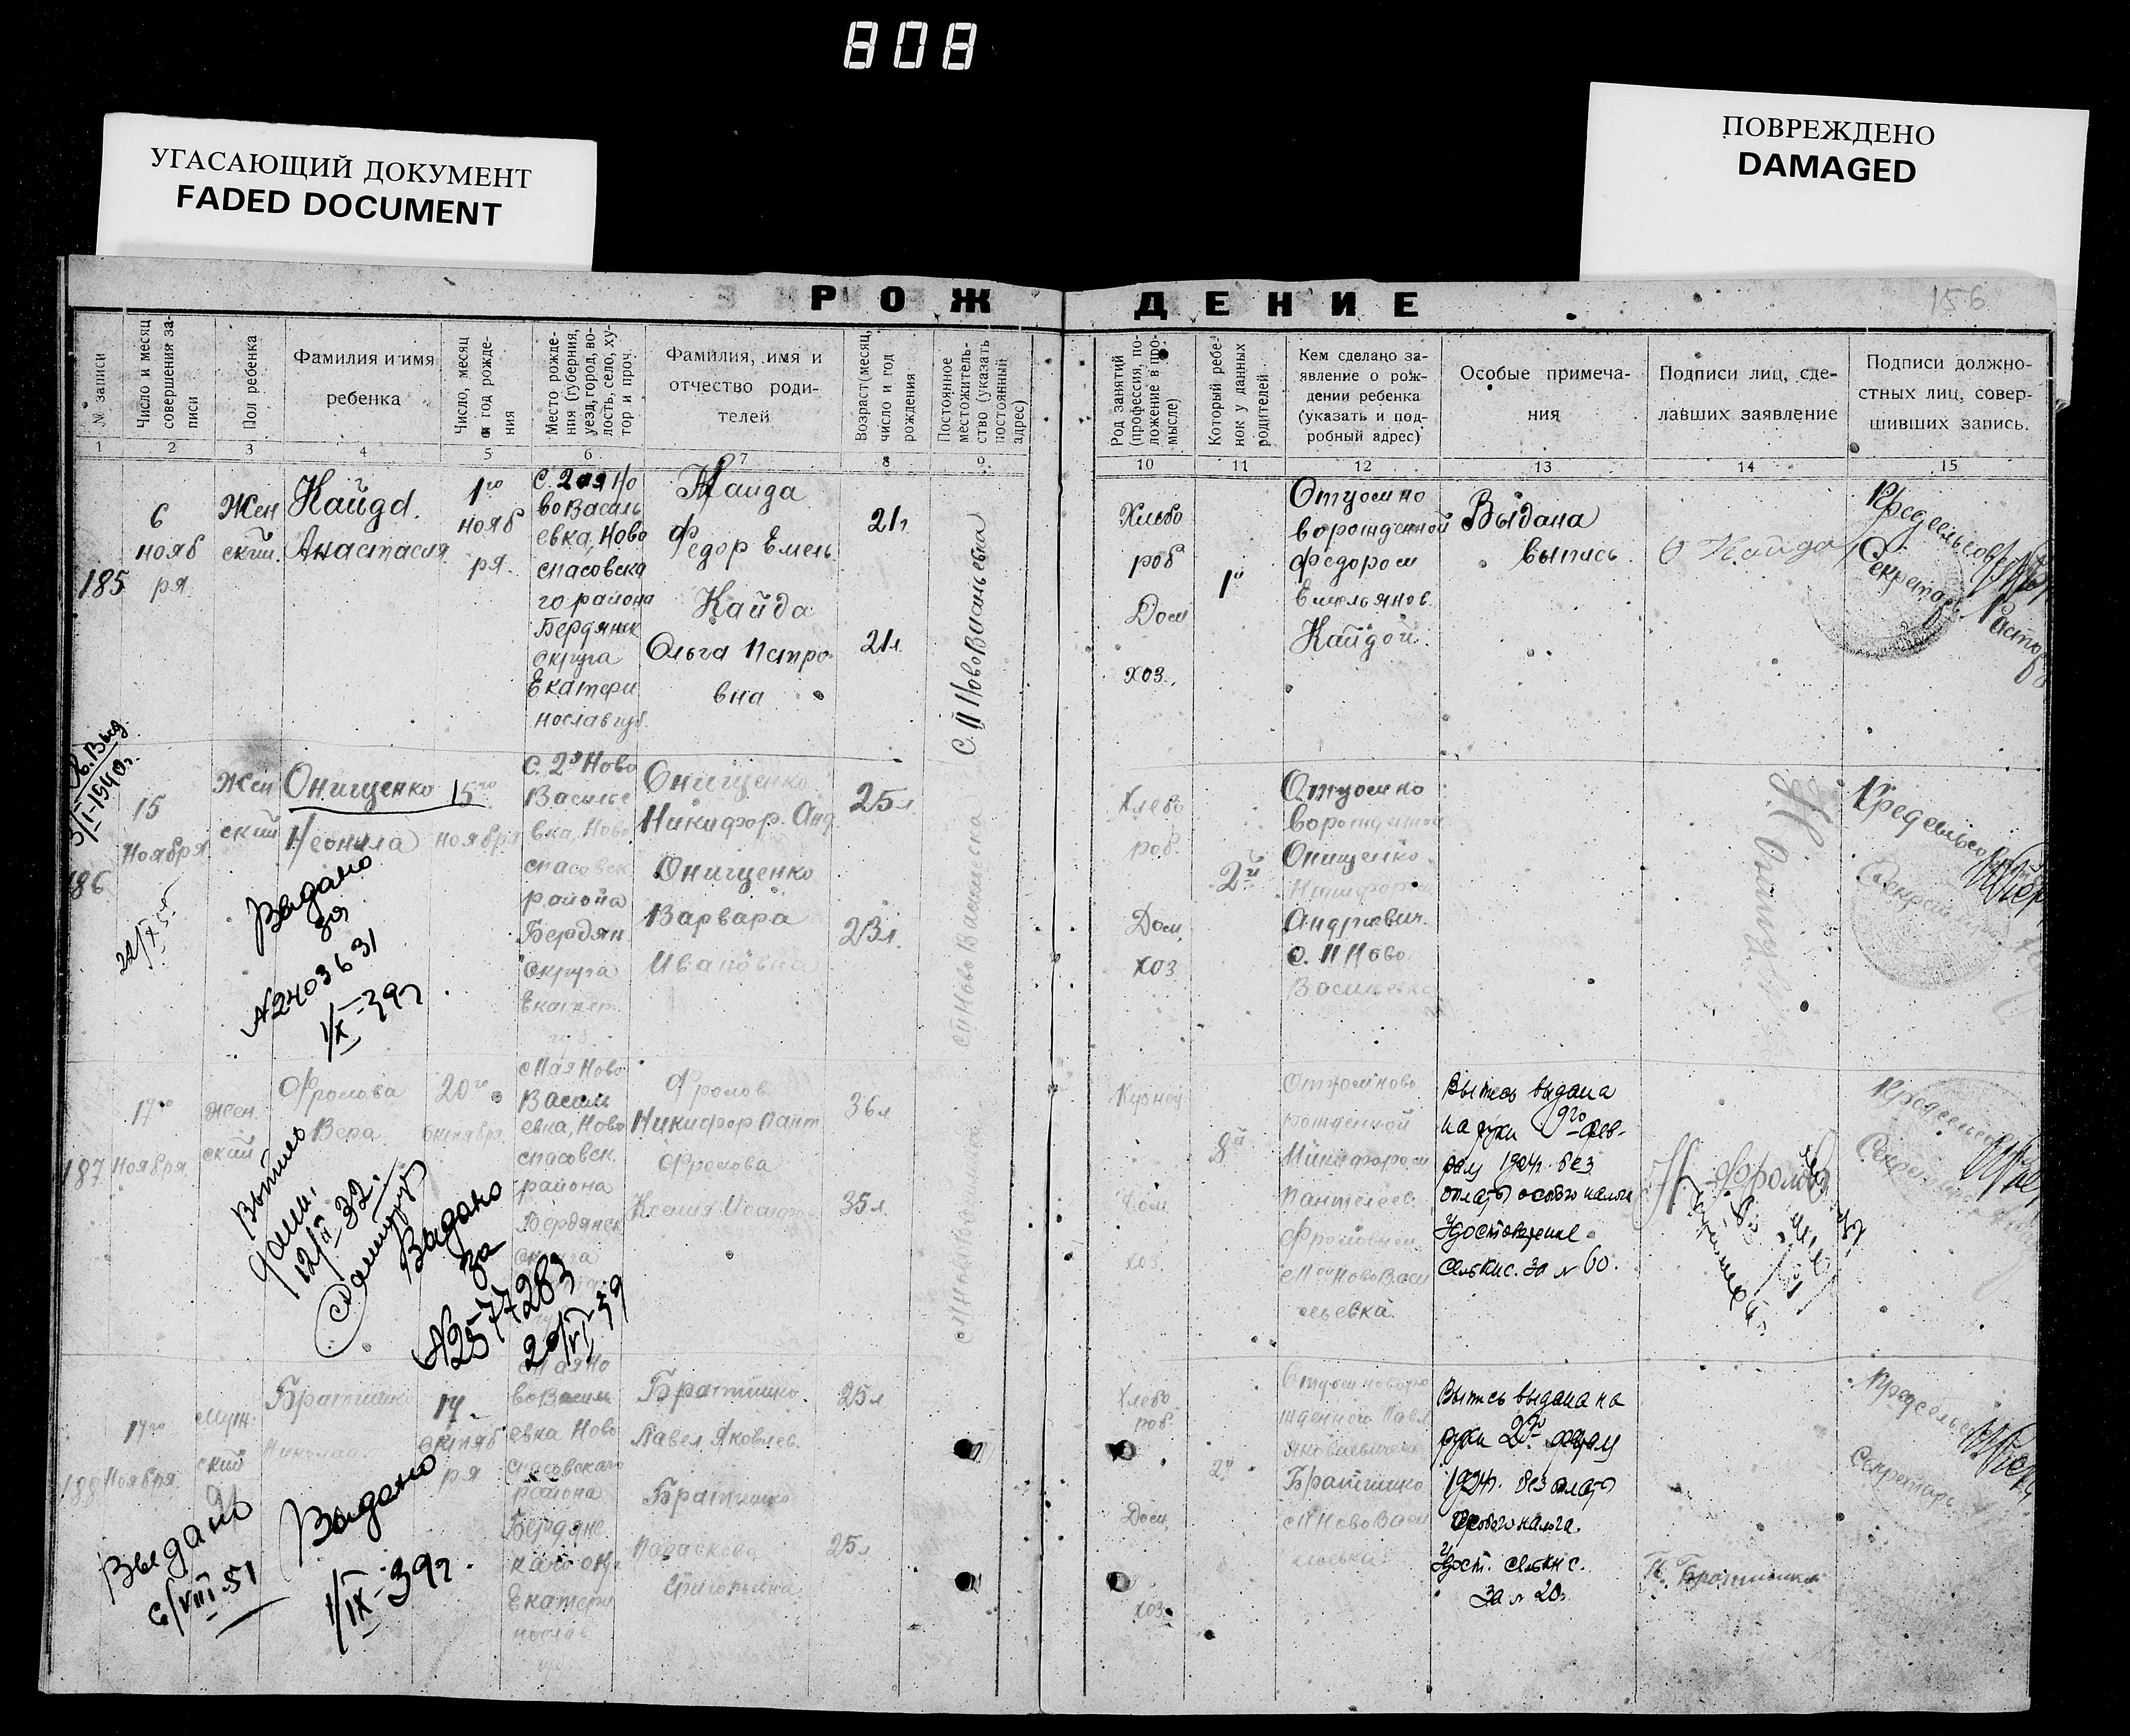 808
УГАСАЮЩИЙ ДОКУМЕНТ
FADED DOCUMENT
ПОВРЕЖДЕНО
DAMAGED
РОЖДЕНИЕ
156
№ записи
Число и месяц совершения записи
Пол ребенка
Фамилия и имя
ребенка
Число, месяц и год рождения
Место рождения (губерния, уезд, город, волость, село, хутор и проч.
Фамилия, имя и
отчество роди-
телей
Возраст (месяц, число и год рождения
Постоянное местожительство (указать постоянный адрес)
Род занятий (профессия, положение в промысле)
Который ребенок у данных родителей
Кем сделано за-
явление о рож-
дении ребенка
(указать и под-
робный адрес)
Особые примеча-
ния
Подписи лиц, сде-
лавших заявление
Подписи должно-
стных лиц, совер-
шивших запись.
1 2 3 4 5 6 7 8 9 10 11 12 13 14 15
185
6
нояб
ря
Жен
ский
Кайда
Анастасия
1го
нояб
ря
С. 2ая Но
во Василь
евка, Ново
спасовска
го района
Бердянск
округа
Екатери
нослав губ.
Кайда
Федор Емель
Кайда
Ольга Петро
вна
21г
21г.
С. II НовоВасильевка
Хлебо
роб
Дом
хоз.
1й
Отцом но
ворожденной
Федором
Емельянов.
Кайдой.
Выдана
выпись
Кайда
Предсельсов
Секретарь
186
15
Ноября
Жен
ский
Онищенко
Неонила
15го
ноября
С. 2я Ново
Василье
вка, Ново
спасовск
района
Бердян.
округа
Екатер.
Онищенко
Никифор Анд
Онищенко
Варвара
Ивановна
25л
23л.
Хлебо
роб.
Дом.
хоз
2й
Отцом но
ворожденной
Онищенко
Никифором
Андреевич.
с. II Ново
Васильевка
Предсельсов
Секретарь
22/X 55
Выдано
за
№ 2403631
1/IX-39г.
187
17го
Ноября
Жен
ский
Фролова
Вера
20го
октября
с IIая Ново
Васили
евка, Ново
спасовск.
района
Бердянск
округа
Фролов
Никифор Пант
Фролова
Ксения
36л
35л.
Кузнец
Дом.
хоз.
8й
Отцом ново
рожденной
Никифором
Пантелеев.
Фроловым
с II НовоВаси
льевка.
Выпись выдана
на руки 9го фев-
раля 1924г. без
оплаты особого налога
Удостоверение
сельис. за № 60.
Н Фролов
Предсельсов
Секретарь
Выпись
дана.
12/II 32.
Выдано
за
№ 2577283
20/VI-39
188
17го
Ноября
Муж.
ский
Братишко
Николай
14
октяб
ря
с IIая Но
во Васили
евка Ново
спасовского
района
Бердянс
кого окр.
Екатери
нослав.
Братишко
Павел Яковлев.
Братишко
Параскева
Григорьевна
25л
25л
Хлебо
роб.
Дом.
хоз.
2й
Отцом новоро
жденного Павл
Яковлевичем
Братишко
с II НовоВаси
льевка.
Выпись выдана на
руки 2го
1924г. без оплаты
особого налога.
Удост. сельис.
за № 20.
П. Братишко
Предсельсов
Секретарь
Выдано
6/VIII-51
Выдано
1/IX-39г.